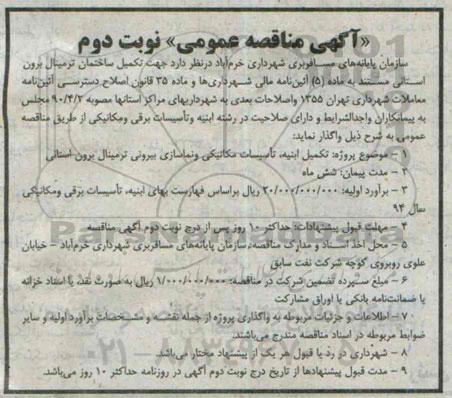 «آگهی مناقصه عمومی» نوبت دوم
سازمان پایانه‌های مسافربری شهرداری خرم‌آباد درنظر دارد جهت تکمیل ساختمان ترمینال برون
استانی مستند به ماده (۵) آئین‌نامه مالی شهرداری‌ها و ماده ۳۵ قانون اصلاح دسترسی آئین‌نامه
معاملات شهرداری تهران ۱۳۵۵ واصلاحات بعدی به شهرداریهای مراکز استانها مصوبه ۹۰/۴/۲ مجلس
به پیمانکاران واجدالشرایط و دارای صلاحیت در رشته ابنیه وتأسیسات برقی ومکانیکی از طریق مناقصه
عمومی به شرح ذیل واگذار نماید:
۱ - موضوع پروژه: تکمیل ابنیه، تأسیسات مکانیکی ونماسازی بیرونی ترمینال برون استانی
۲ - مدت پیمان: شش ماه
۳ - برآورد اولیه: ۲۰/۰۰۰/۰۰۰/۰۰۰ ریال براساس فهارست بهای ابنیه، تأسیسات برقی ومکانیکی
سال ۹۴
۴ - مهلت قبول پیشنهادات: حداکثر ۱۰ روز پس از درج نوبت دوم آگهی مناقصه
۵ - محل اخذ اسناد و مدارک مناقصه، سازمان پایانه‌های مسافربری شهرداری خرم‌آباد - خیابان
علوی روبروی کوچه شرکت نفت سابق
۶ - مبلغ سپرده تضمین شرکت در مناقصه: ۱/۰۰۰/۰۰۰/۰۰۰ ریال به صورت نقد، یا اسناد خزانه
یا ضمانت‌نامه بانکی یا اوراق مشارکت
۷ - اطلاعات و جزئیات مربوطه به واگذاری پروژه از جمله نقشه و مشخصات برآورد اولیه و سایر
ضوابط مربوطه در اسناد مناقصه مندرج می‌باشند.
۸ - شهرداری در رد یا قبول هر یک از پیشنهاد مختار می‌باشد.
۹ - مدت قبول پیشنهادها از تاریخ درج نوبت دوم آگهی در روزنامه حداکثر ۱۰ روز می‌باشد.